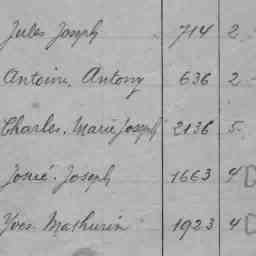 Jules Joseph 714 2
Antoine, Antony 636 2
Charles, Marie Joseph 2136 5
Josué. Joseph 1663 4
Yves Mathurin 1923 4